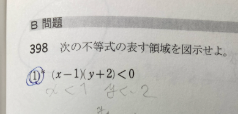 B 問題
398 次の不等式の表す領域を図示せよ。
(1)* (x-1)(y+2)<0
x<1 y<-2